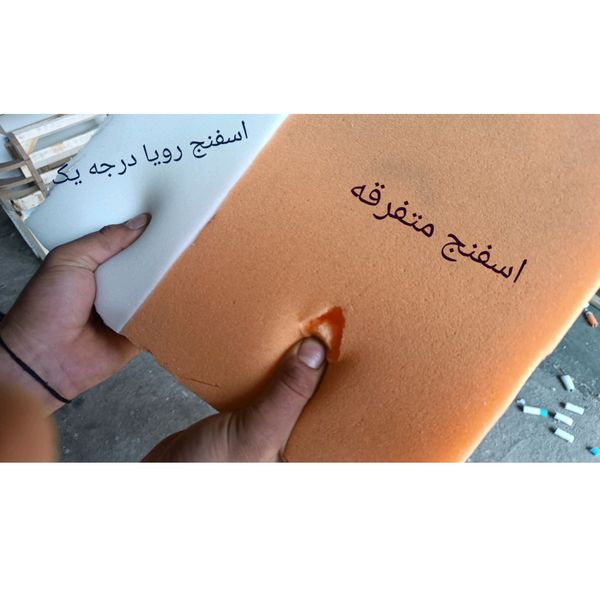 اسفنج رویا درجه یک
اسفنج متفرقه